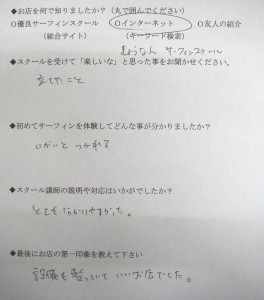 ◆お店を何で知りましたか？（丸で囲んでください）
○優良サーフィンスクール　○インターネット　○友人の紹介
（総合サイト）　（キーワード検索）
きょうなん サーフィンスクール
◆スクールを受けて「楽しいな」と思った事をお聞かせください。
立てたこと
◆初めてサーフィンを体験してどんな事が分かりましたか？
いがいと つかれる
◆スクール講師の説明や対応はいかがでしたか？
とてもわかりやすかった。
◆最後にお店の第一印象を教えて下さい
設備も整っていて いいお店でした。